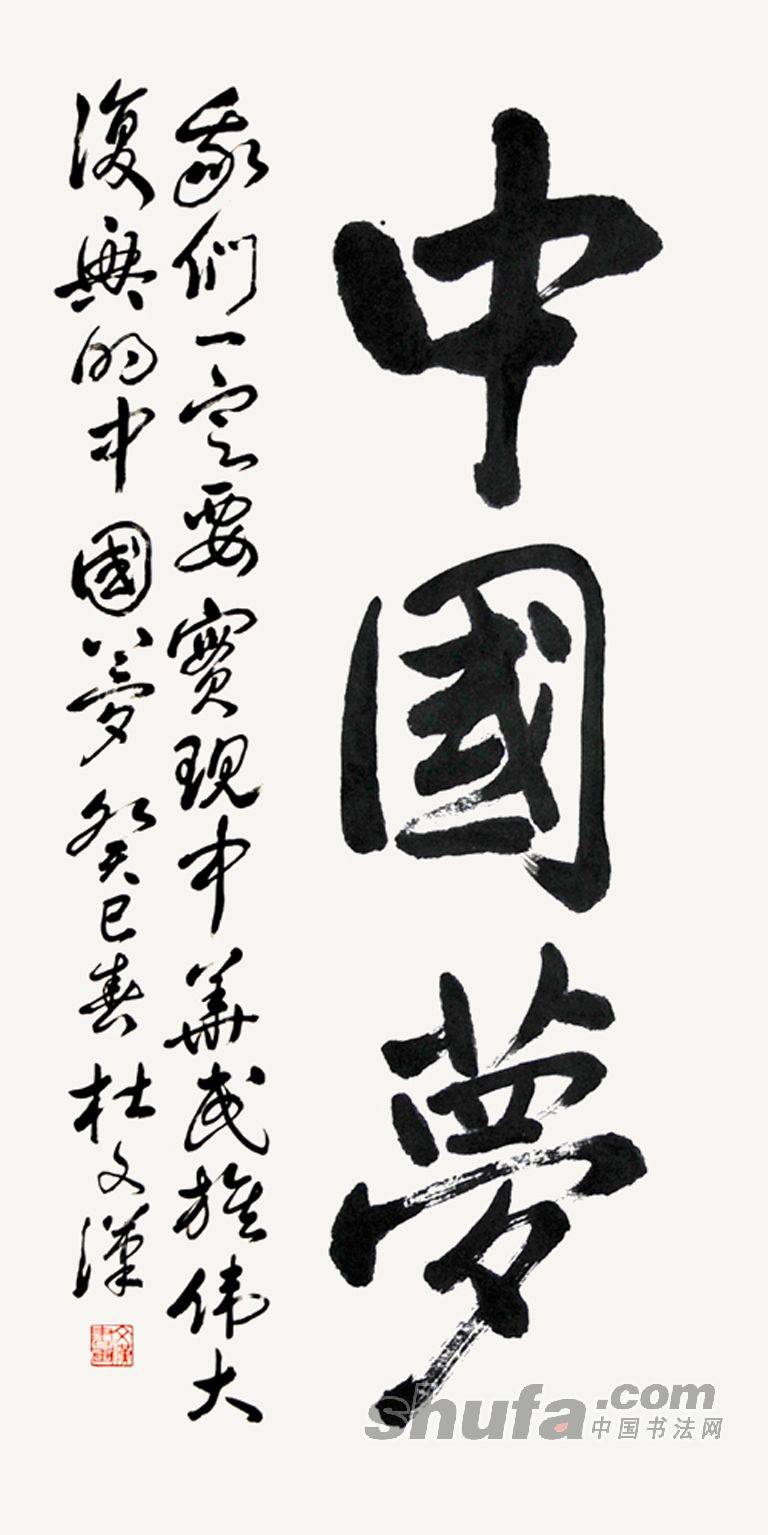 中國夢
我们一定要實現中華民族伟大
復興的中國夢 癸巳春 杜文漢
shufa.com
中国书法网